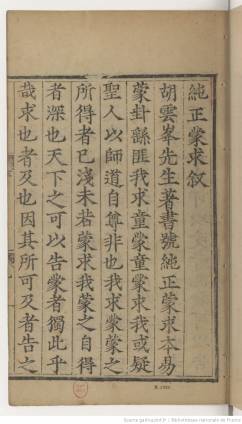 純正蒙求叙
胡雲峯先生著書號純正蒙求本易
蒙卦繇匪我求童蒙童蒙求我或疑
聖人以師道自尊非也我求蒙蒙之
所得者已淺未若蒙求我蒙之自得
者深也天下之可以告蒙者獨此乎
哉求也者及也因其所可及者告之
Source gallica.bnf.fr / Bibliothèque nationale de France